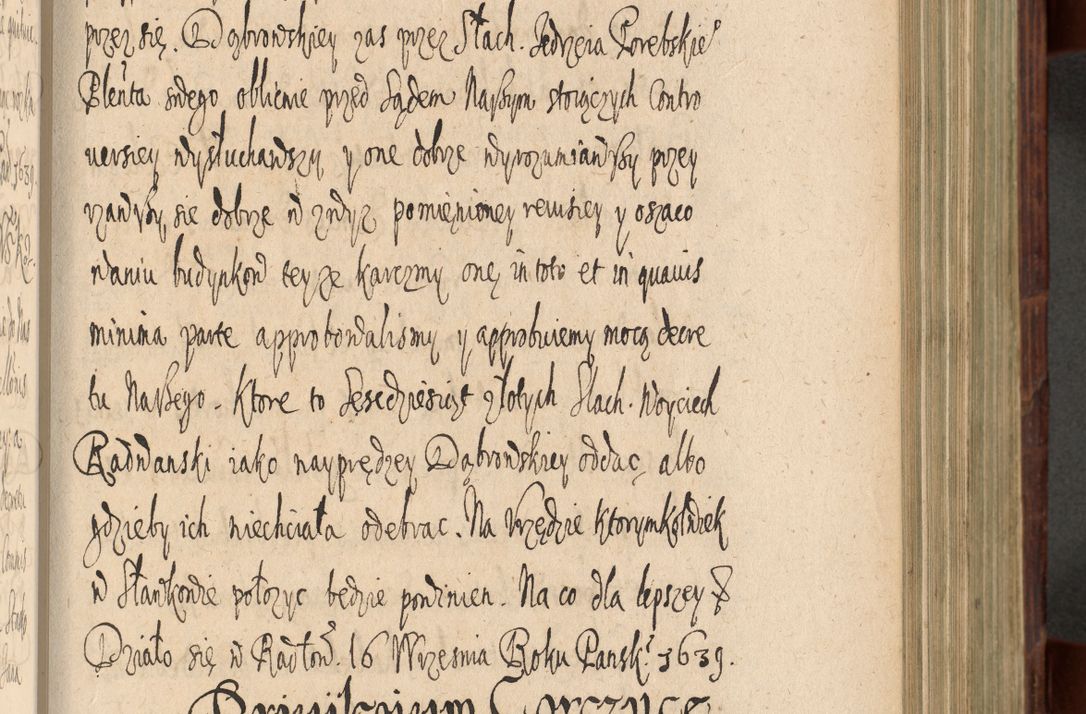 przez się. Dąbrowskiey zas przez Słach. Jędrzeia Porębskie°
Plenta swego oblicznie przed Sądem Naßym stoiączych Contro
uersiey wysłuchawszy y one dobrze wyrozumiawßy przey
rzawßy się dobrze w zwysz pomienioney rewisiey y oszaco
waniu budynkow teysze karczmy onę in toto et in quauis
minima parte approbowalismy y approbuiemy mocą decre
tu Naßego. Ktore to Sescdziesiąt złotych Slach. Woyciech
Radwanski iako nayprędzey Dąbrowskiey oddac, albo
gdzieby ich niechciała odebrac. Na Vrzędzie ktorymkolwiek
w Sławkowie połozyc będzie powinien. Na co dla lepszey
Działo się w Radłow. 16 Wrzesnia Roku Pansk. 1639.